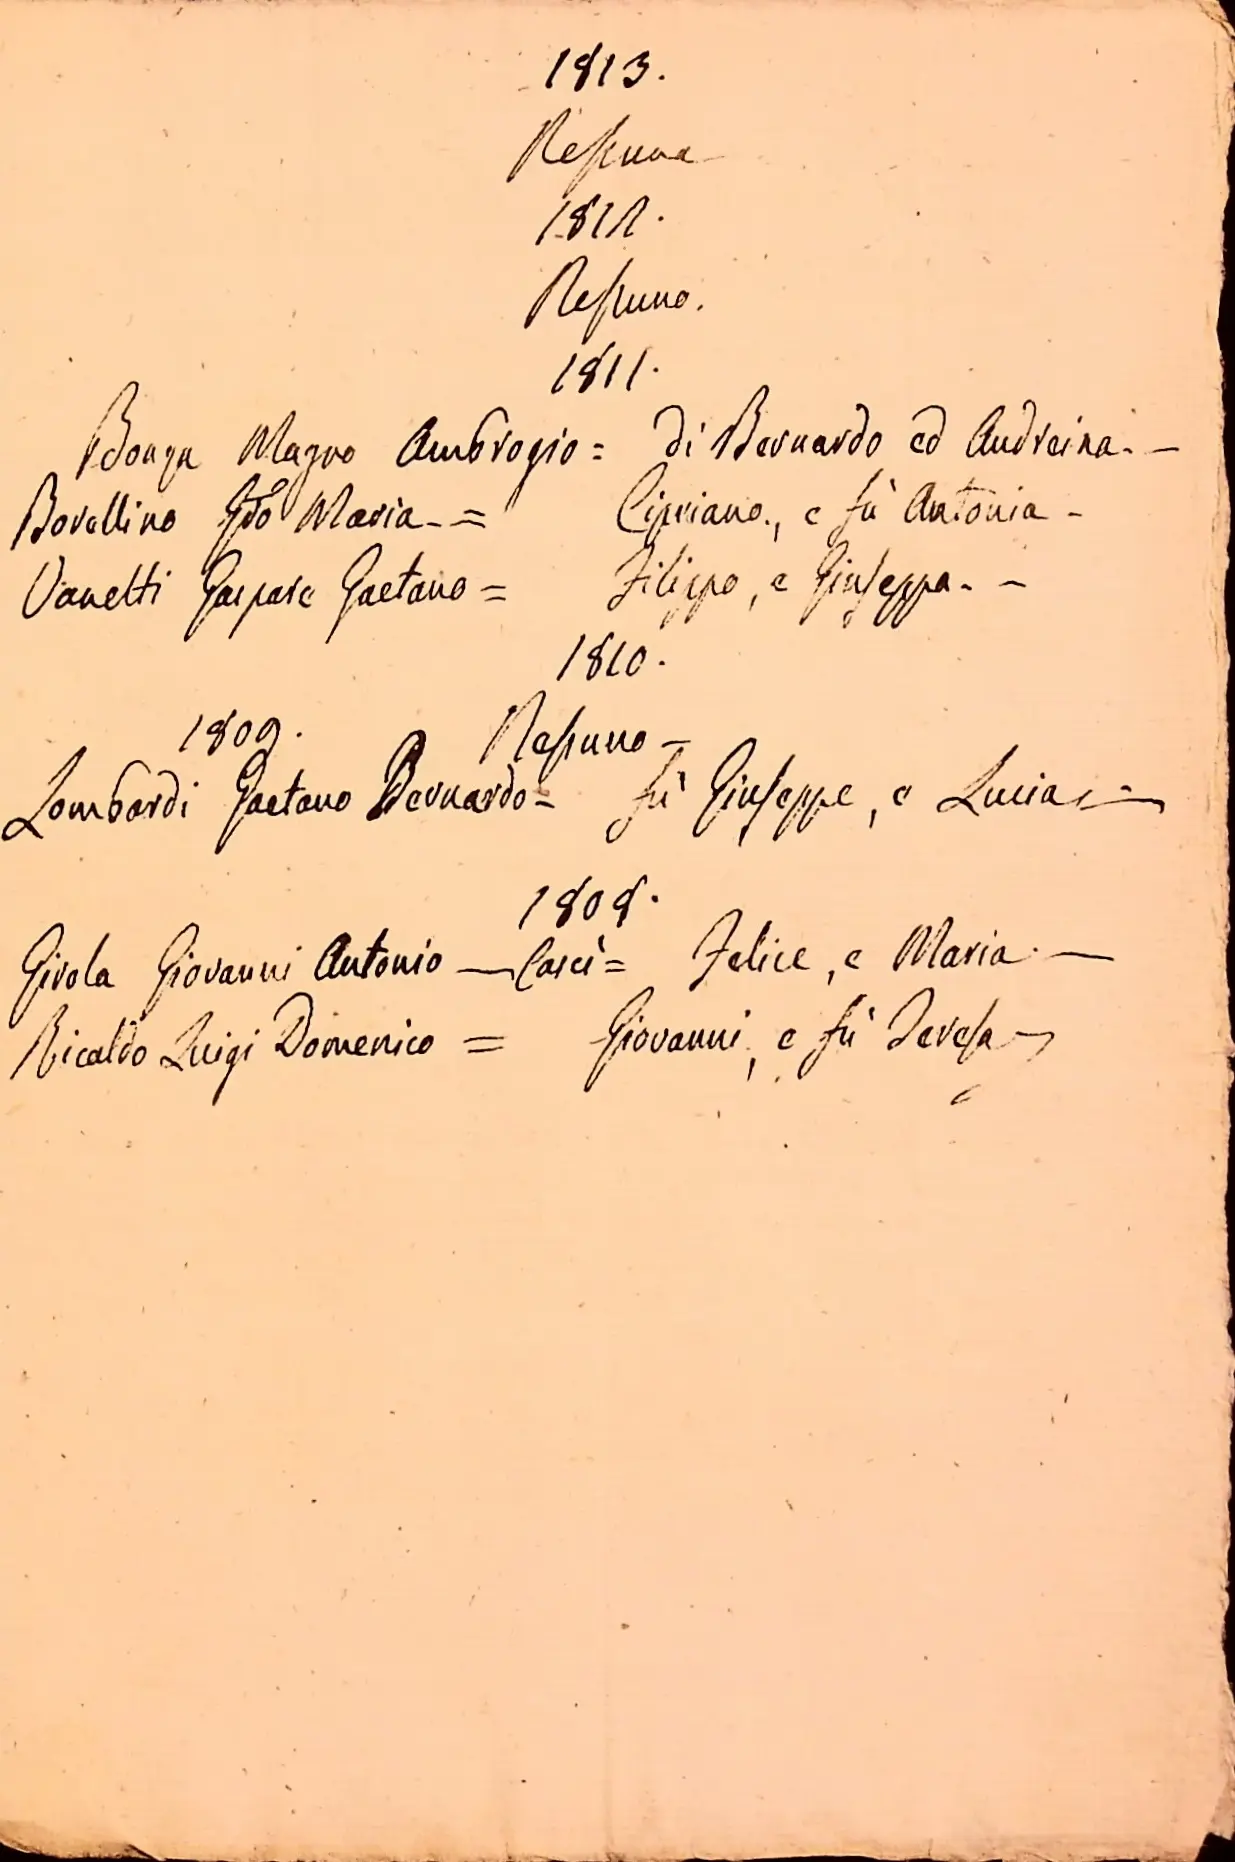 1813.
Nessuno
1812.
Nessuno.
1811.
Magno Ambrogio = di Bernardo ed Andreina. -
Borellino Maria - = Cipriano., e fù Antonia -
Vanetti Gaspare Gaetano = Filippo, e Giuseppa. -
1810.
Nessuno -
1809.
Lombardi Gaetano Bernardo = fù Giuseppe, e Lucia -
1808.
Girola Giovanni Antonio — = Felice, e Maria. —
Ricaldo Luigi Domenico = Giovanni, e fù Teresa -